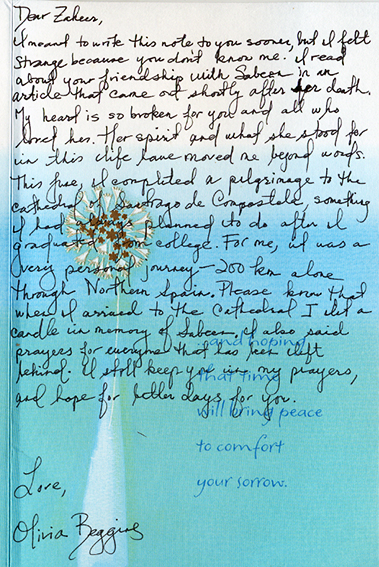 Dear Zaheer,
I meant to write this note to you sooner, but I felt
strange because you don't know me. I read
about your friendship with Sabeen in an
article that came out shortly after her death.
My heard is so broken for you and all who
loved her. Her spirit and what she stood for
in this life have moved me beyond words.
This June, I completed a pilgrimage to the
cathedral of Santiago de Compostela, something
I had planned to do after I
graduated from college. For me, it was a
very personal journey—200 km alone
through Northern Spain. Please know that
when I arrived to the Cathedral I lit a
candle in memory of Sabeen. I also said
prayers for everyone that has been left
behind. I still keep you in my prayers,
and hope for better days for you.
...and hoping
that time
will bring peace
to comfort
your sorrow.
Love,
Olivia Beggins